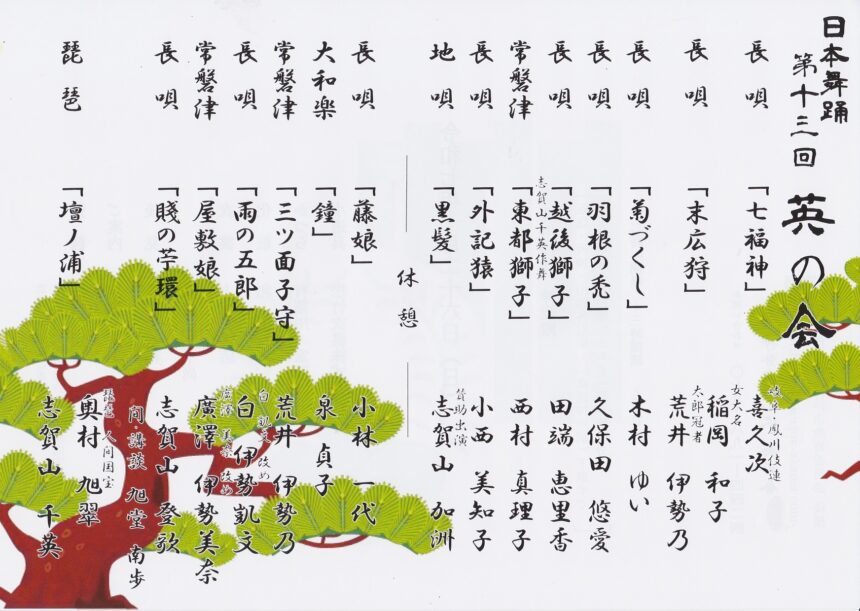 日本舞踊
第十三回 英の会
長唄 「七福神」 岐阜・鳳川伎連 喜久次
長唄 「末広狩」 女大名 稲岡 和子
太郎冠者 荒井 伊勢乃
長唄 「菊づくし」 木村 ゆい
長唄 「羽根の禿」 久保田 悠愛
長唄 「越後獅子」 田端 恵里香
志賀山千英作舞
常磐津 「東都獅子」 西村 真理子
長唄 「外記猿」 小西 美知子
地唄 「黒髪」 賛助出演 志賀山 加洲
休憩
長唄 「藤娘」 小林 一代
大和楽 「鐘」 泉 貞子
常磐津 「三ツ面子守」 荒井 伊勢乃
長唄 「雨の五郎」 白 伊勢凱文
常磐津 「屋敷娘」 廣澤 伊勢美奈
長唄 「賤の苧環」 志賀山 登歌
問・講談 旭堂 南歩
琵琶 人间国宝 奥村 旭翠
琵琶 「壇ノ浦」 志賀山 千英